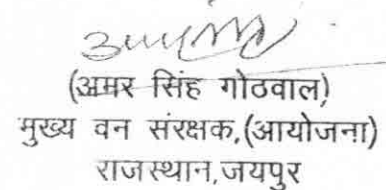 (अमर सिंह गोठवाल)
मुख्य वन संरक्षक,(आयोजना)
राजस्थान,जयपुर